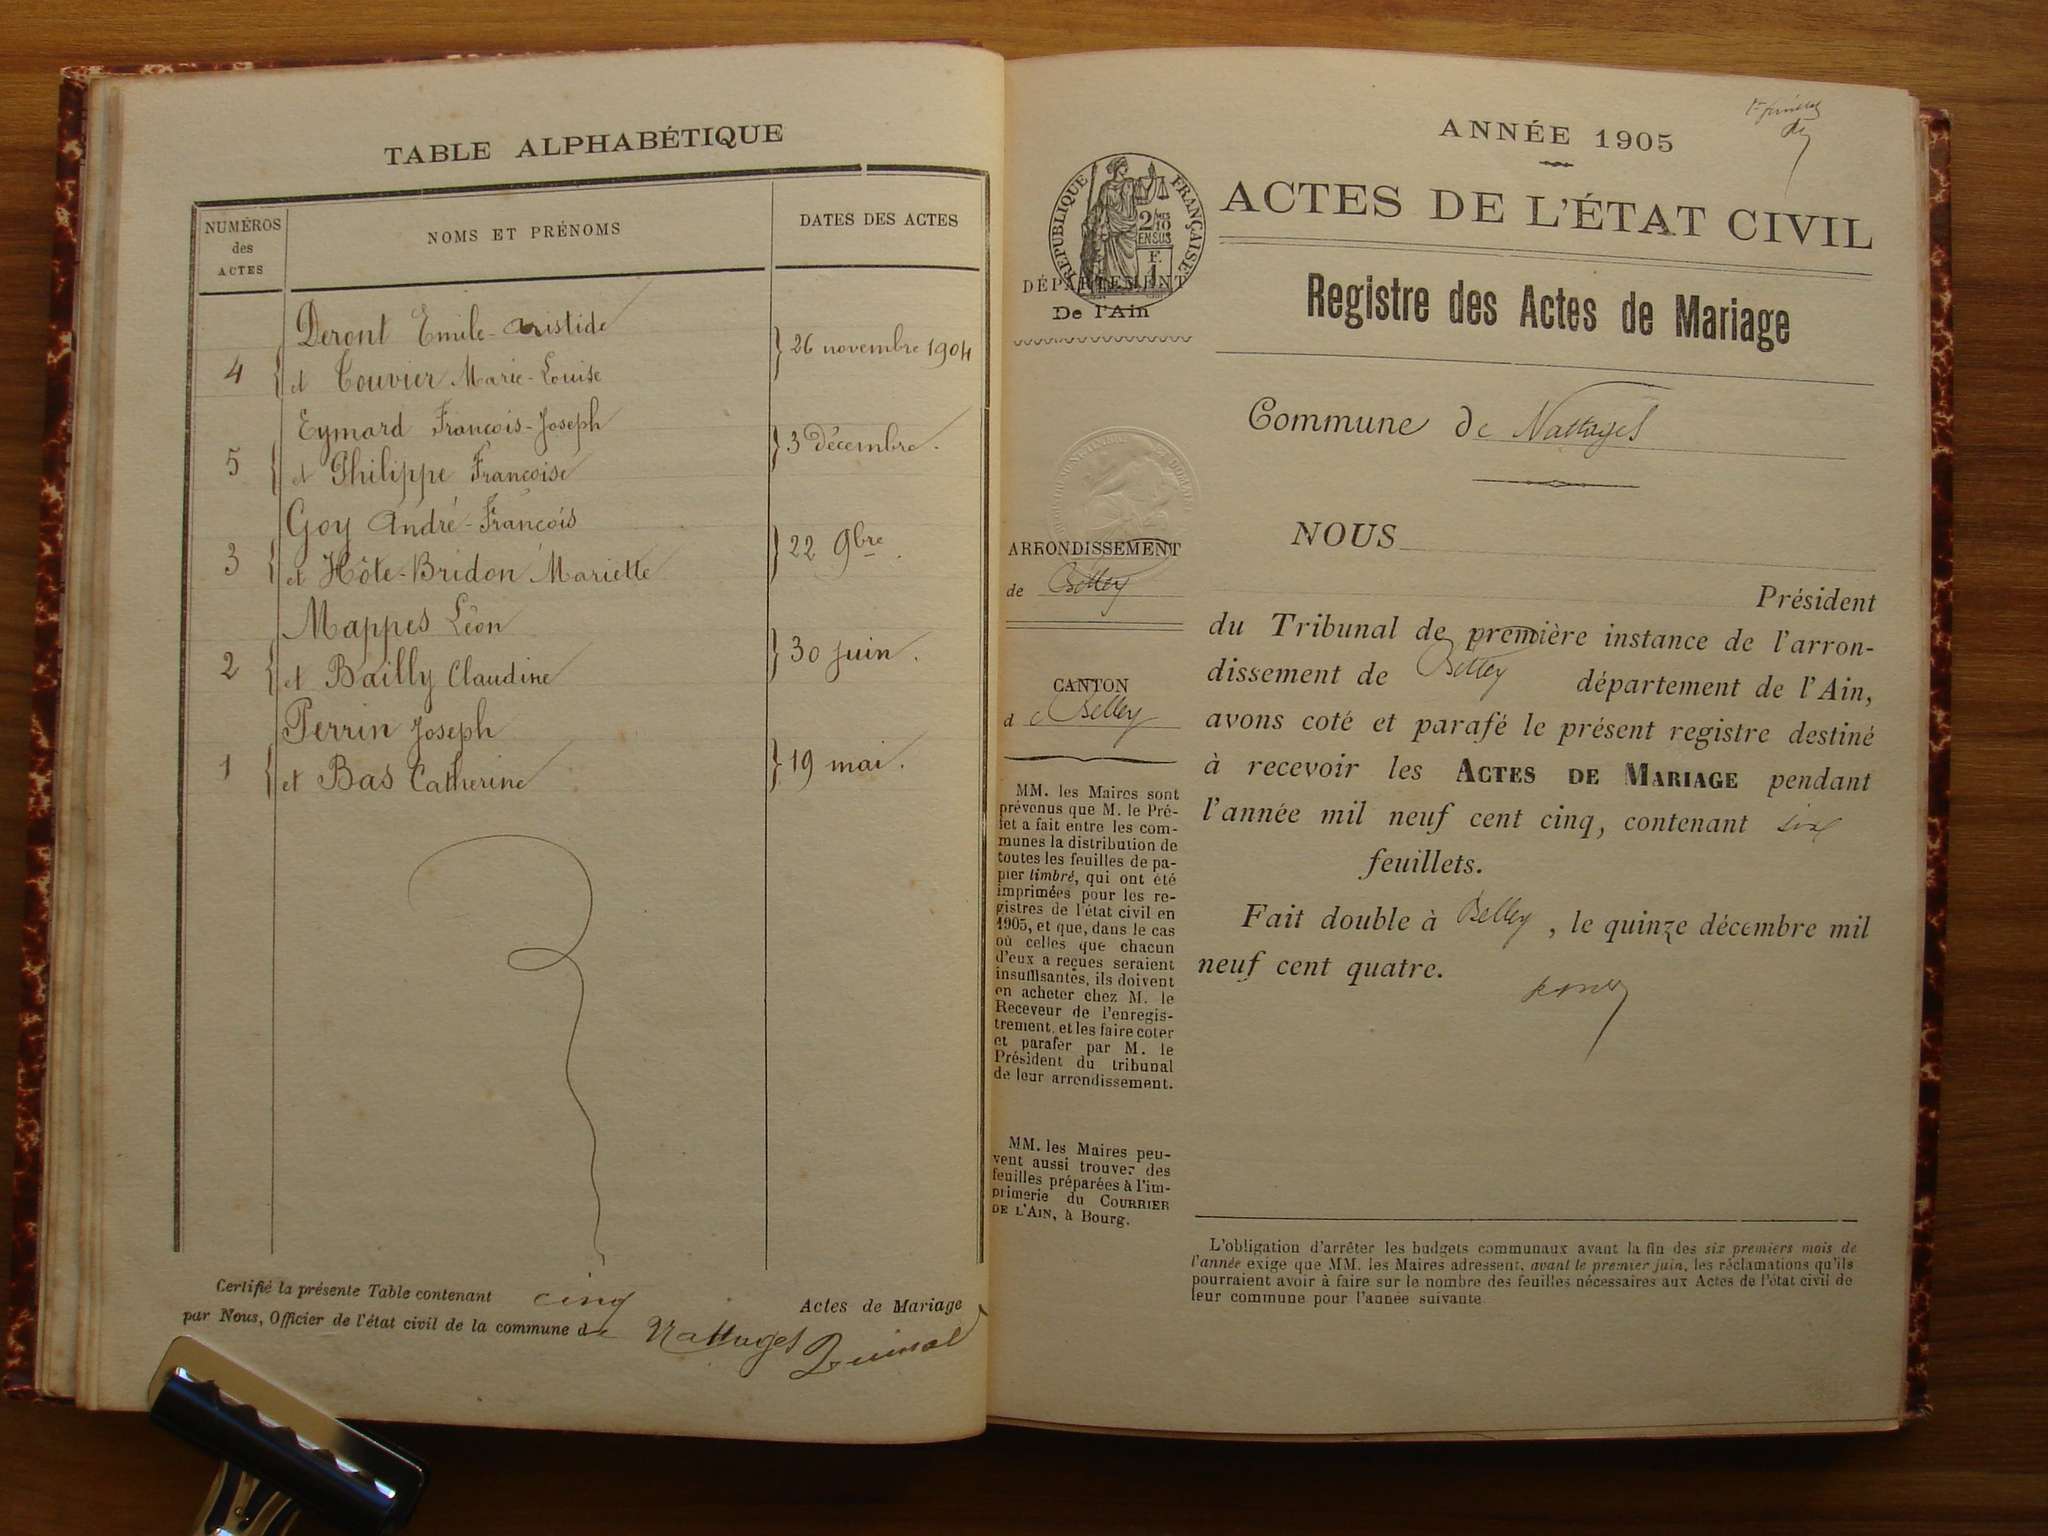 TABLE ALPHABÉTIQUE
NUMÉROS
des
ACTES
NOMS ET PRÉNOMS
DATES DES ACTES
Deront Emile-Aristide
4 et Couvier Marie-Louise
26 novembre 1904
Eymard François-Joseph
5 et Philippe Françoise
3 décembre.
Goy André-François
3 et Hôte-Bridon Mariette
22 9bre.
Mappes Léon
2 et Bailly Claudine
30 juin.
Perrin Joseph
1 et Bas Catherine
19 mai.
Certifié la présente Table contenant cinq Actes de Mariage
par Nous, Officier de l'état civil de la commune de Nattages
ANNÉE 1905
ACTES DE L'ÉTAT CIVIL
RÉPUBLIQUE FRANÇAISE
2/10 EN SUS
F.
1
DÉPARTEMENT
De l'Ain
Registre des Actes de Mariage
Commune de Nattages
ARRONDISSEMENT
de Belley
CANTON
de Belley
MM. les Maires sont
prévenus que M. le Pré-
fet a fait entre les com-
munes la distribution de
toutes les feuilles de pa-
pier timbré, qui ont été
imprimées pour les re-
gistres de l'état civil en
1905, et que, dans le cas
où celles que chacun
d'eux a reçues seraient
insuffisantes, ils doivent
en acheter chez M. le
Receveur de l'enregis-
trement, et les faire coter
et parafer par M. le
Président du tribunal
de leur arrondissement.
MM. les Maires peu-
vent aussi trouver des
feuilles préparées à l'im-
primerie du COURRIER
DE L'AIN, à Bourg.
NOUS
Président
du Tribunal de première instance de l'arron-
dissement de Belley département de l'Ain,
avons coté et parafé le présent registre destiné
à recevoir les ACTES DE MARIAGE pendant
l'année mil neuf cent cinq, contenant six
feuillets.
Fait double à Belley, le quinze décembre mil
neuf cent quatre.
L'obligation d'arrêter les budgets communaux avant la fin des six premiers mois de
l'année exige que MM. les Maires adressent, avant le premier juin, les réclamations qu'ils
pourraient avoir à faire sur le nombre des feuilles nécessaires aux Actes de l'état civil de
leur commune pour l'année suivante.